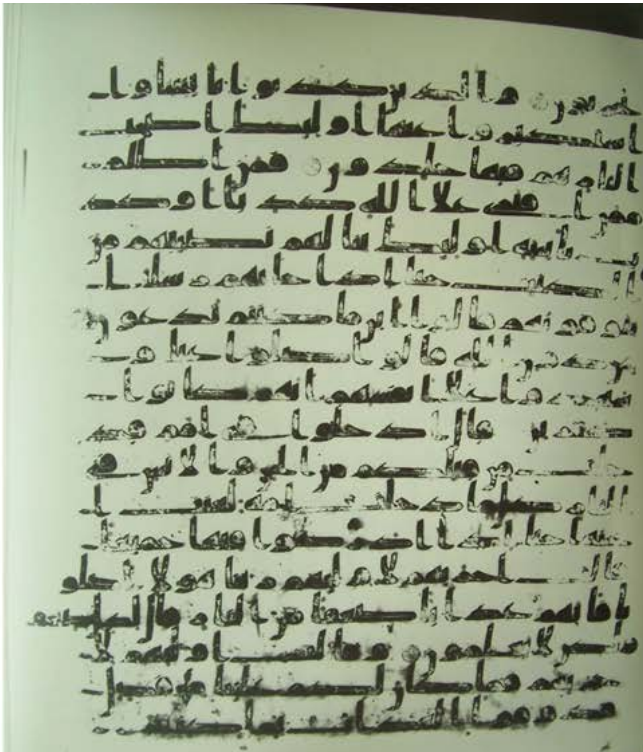 يحزنون والذين كذبوا بايتنا وا
ستكبروا عنها اولئك اصحب
النار هم فيها خلدون فمن اظلم
ممن افترى على الله كذبا او كذ
ب بايته اولئك ينالهم نصيبهم من
الكتب حتى اذا جاتهم رسلنا
يتوفونهم قالوا اين ما كنتم تدعون
من دون الله قالوا ضلوا عنا و
شهدوا على انفسهم انهم كانوا
كفرين قال ادخلوا في امم قد
خلت من قبلكم من الجن والانس في
النار كلما دخلت امة لعنت ا
ختها حتى اذا اداركوا فيها جميعا
قالت اخريهم لاوليهم ربنا هولا اضلو
نا فاتهم عذابا ضعفا من النار قال لكل ضعف
ولكن لا تعلمون وقالت اوليهم لا
خريهم فما كان لكم علينا من فضل
فذوقوا العذاب بما كنتم